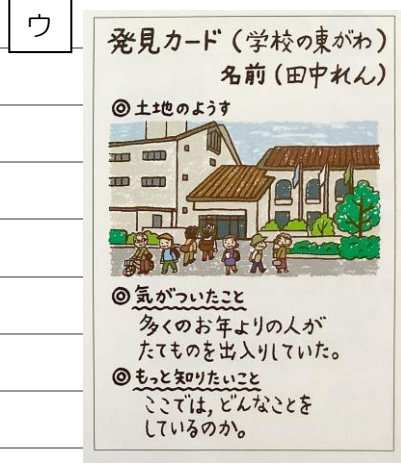 ウ
発見カード(学校の東がわ)
名前(田中れん)
◎土地のようす
◎気がついたこと
多くのお年よりの人が
たてものを出入りしていた。
◎もっと知りたいこと
ここでは,どんなことを
しているのか。